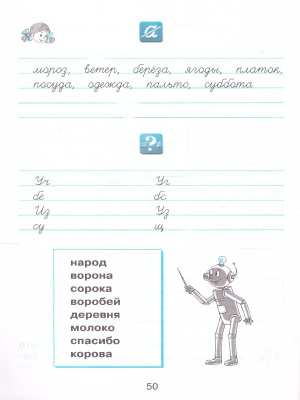 мороз, ветер, берёза, ягоды, платок,
посуда, одежда, пальто, суббота
?
Уч Уг
бе бс
Из Уз
су щ
народ
ворона
сорока
воробей
деревня
молоко
спасибо
корова
50